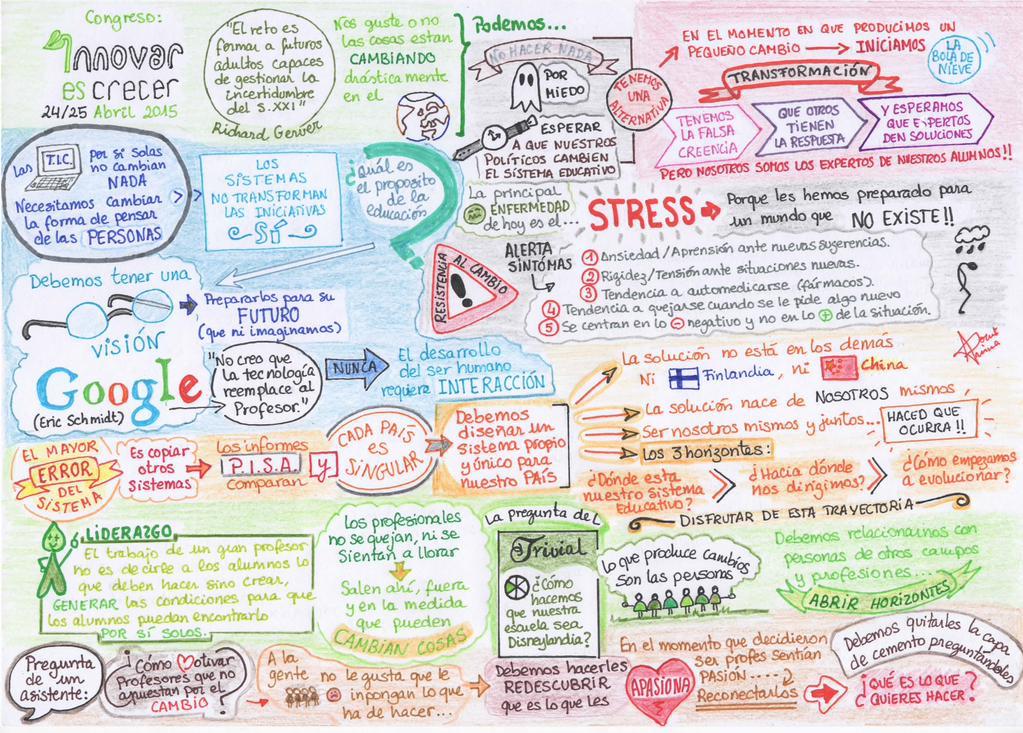 Congreso:
Innovar
es crecer
24/25 Abril 2015
"El reto es
formar a futuros
adultos capaces
de gestionar la
incertidumbre
del S.XXI"
Richard Gerver
Nos guste o no
las cosas estan
CAMBIANDO
drásticamente
en el
Podemos...
NO HACER NADA
POR
MIEDO
ESPERAR
A QUE NUESTROS
POLÍTICOS CAMBIEN
EL SISTEMA EDUCATIVO
TENEMOS UNA
ALTERNATIVA
EN EL MOMENTO EN QUE PRODUCIMOS UN
PEQUEÑO CAMBIO → INICIAMOS
LA
BOLA DE
NIEVE
TRANSFORMACIÓN
TENEMOS
LA FALSA
CREENCIA
QUE OTROS
TIENEN
LA RESPUESTA
Y ESPERAMOS
QUE EXPERTOS
DEN SOLUCIONES
PERO NOSOTROS SOMOS LOS EXPERTOS DE NUESTROS ALUMNOS!!
Las T.I.C. por sí solas
no cambian
NADA
Necesitamos cambiar
la forma de pensar
de las PERSONAS
LOS
SISTEMAS
NO TRANSFORMAN
LAS INICIATIVAS
SÍ
¿Cuál es
el proposito
de la
educación
La principal
ENFERMEDAD
de hoy es el...
STRESS
Porque les hemos preparado para
un mundo que NO EXISTE!!
RESISTENCIA
AL CAMBIO
!
ALERTA
SÍNTOMAS
1 Ansiedad/Aprensión ante nuevas sugerencias.
2 Rigidez/Tensión ante situaciones nuevas.
3 Tendencia a automedicarse (fármacos).
4 Tendencia a quejarse cuando se le pide algo nuevo
5 Se centran en lo - negativo y no en lo + de la situación.
Debemos tener una
VISIÓN
Prepararlos para su
FUTURO
(que ni imaginamos)
Google
(Eric Schmidt)
"No creo que
la tecnología
reemplace al
Profesor."
NUNCA
El desarrollo
del ser humano
requiere INTERACCIÓN
La solución no está en los demás
Ni Finlandia, ni China
La solución nace de NOSOTROS mismos
Ser nosotros mismos y juntos...
HACED QUE
OCURRA!!
Los 3 horizontes:
¿Dónde esta
nuestro sistema
Educativo?
¿Hacia dónde
nos dirigimos?
¿Cómo empezamos
a evolucionar?
DISFRUTAR DE ESTA TRAYECTORIA
EL MAYOR
ERROR
DEL
SISTEMA
Es copiar
otros
sistemas
Los informes
P.I.S.A. y
comparan
CADA PAÍS
es
SINGULAR
Debemos
diseñar un
Sistema propio
y único para
nuestro PAÍS
LiDERAZGO
El trabajo de un gran profesor
no es decirle a los alumnos lo
que deben hacer sino crear,
GENERAR las condiciones para que
los alumnos puedan encontrarlo
POR SÍ SOLOS.
Los profesionales
no se quejan, ni se
Sientan a llorar
Salen ahí, fuera
y en la medida
que pueden
CAMBIAN COSAS
La pregunta del
Trivial
¿Cómo
hacemos
que nuestra
escuela sea
Disneylandia?
Lo que produce cambios
son las personas
Debemos relacionarnos con
personas de otros campos
y profesiones...
ABRIR HORIZONTES
Pregunta
de un
asistente:
¿Cómo motivar
Profesores que no
apuestan por el
CAMBIO?
A la
gente no le gusta que le
inpongan lo que
ha de hacer...
Debemos hacerles
REDESCUBRIR
que es lo que les
APASIONA
En el momento que decidieron
ser profes sentían
PASIÓN ....
Reconectarlos
Debemos quitarles la capa
de cemento preguntándoles
¿QUÉ ES LO QUE
QUIERES HACER?